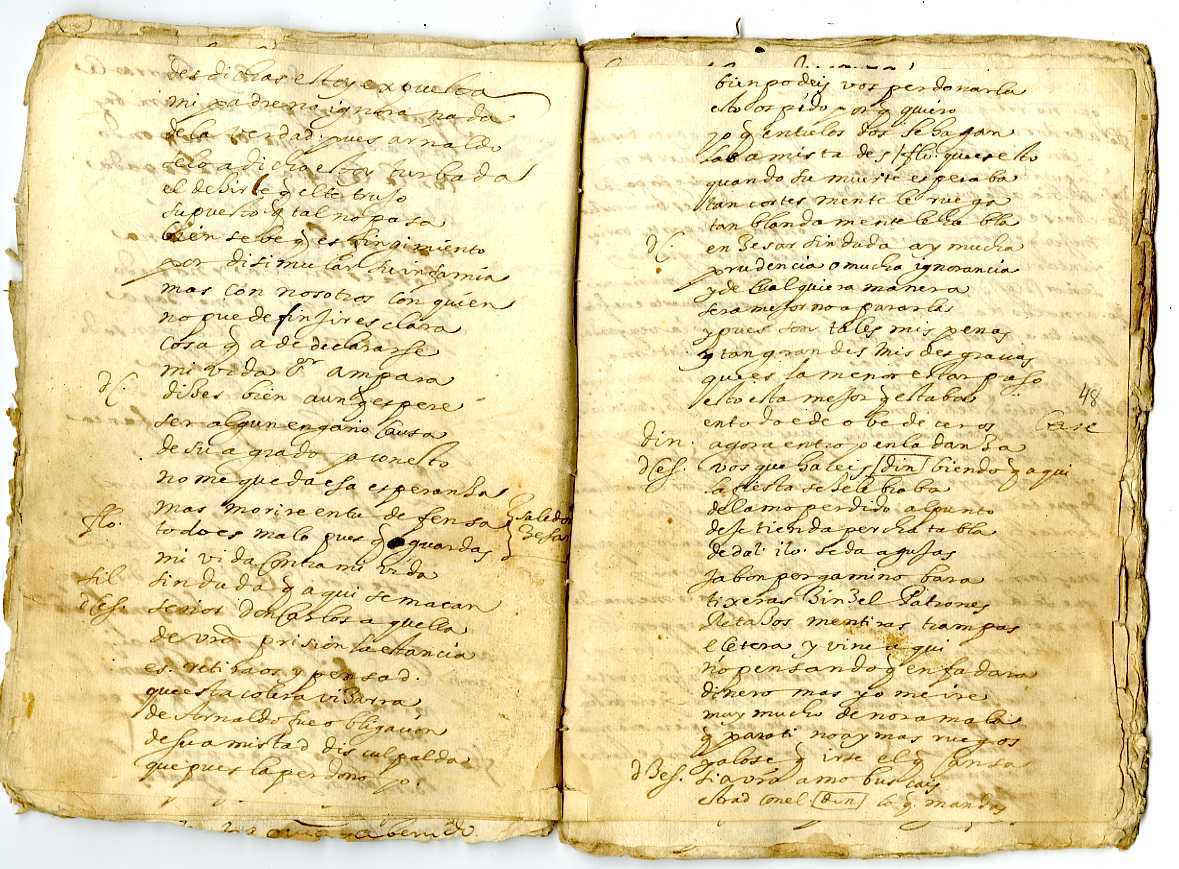 desdichas estoy expuesta
mi padre no ignora nada
de la verdad pues arnaldo
se lo a dicho estoy turbada
el desirle q este trujo
supuesto q tal no pasa
bien se be q es finjimiento
por disimular su infamia
mas con nosotros con quien
no puede finjir es clara
cosa q a de declararse
mi vida ampara
dC. dises bien aunq espere
ser algun engaño causa
de su agrado ya con esto
no me queda esa esperansa
mas morire en tu defensa sale don Sesar
flo. todo es malo pues q aguardas
mi vida contra mi vida
sil sin duda q aqui se matan
dCes. señor don Carlos aquella
de vra prision la estancia
es. retiraos y pensad.
que esta colera visarra
de Arnaldo fue obligasion
de su amistad disculpalda
que pues la perdono yo
bien podeis vos perdonarla
esto os pido porq quiero
yo q entre los dos se hagan
las amistades flo. que es esto
quando su muerte esperaba
tan cortesmente le ruega
tan blandamente le habla
dC. en Sesar sin duda ay mucha
prudencia o mucha ignorancia
y de qualquiera manera
sera mejor no apararlas
y pues son tales mis penas
y tan grandes mis desgracias
que es la menor estar preso
esto esta mejor q estaba
en todo e de obedeceros vase
48
din. agora entro yo en la danza
dCes. vos que haceis din biendo q aqui
la fiesta se selebraba
del amo perdido al punto
deje tienda percha tabla
dedal ilo seda agujas
jabon pergamino bara
tixeras Patrones
Retasos mentiras trampas
etcetera y vine aqui
no pensando q enfadara
dinero mas yo me ire
muy mucho de noramala
q para ti no ay mas ruegos
q irse el q cansa
dSes. si a vro amo buscais
estad con el din lo q mandas